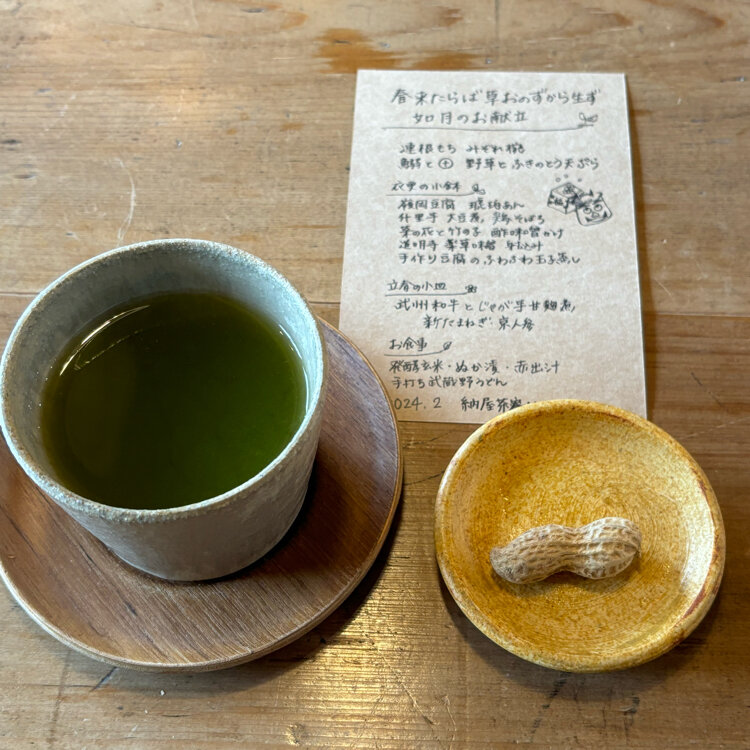 春来たらば草おのずから生ず
如月のお献立
蓮根もち みぞれ椀
鯛と 野草とふきのとう天ぷら
の小鉢
豆腐 あん
大豆煮
菜の花と竹の子 酢味噌かけ
道明寺
手作り豆腐のふわふわ玉子蒸し
立春の小皿
武州和牛とじゃが芋甘麹煮
新たまねぎ・京人参
お食事
発酵玄米・ぬか漬・赤出汁
手打ち武蔵野うどん
024.2 納屋茶